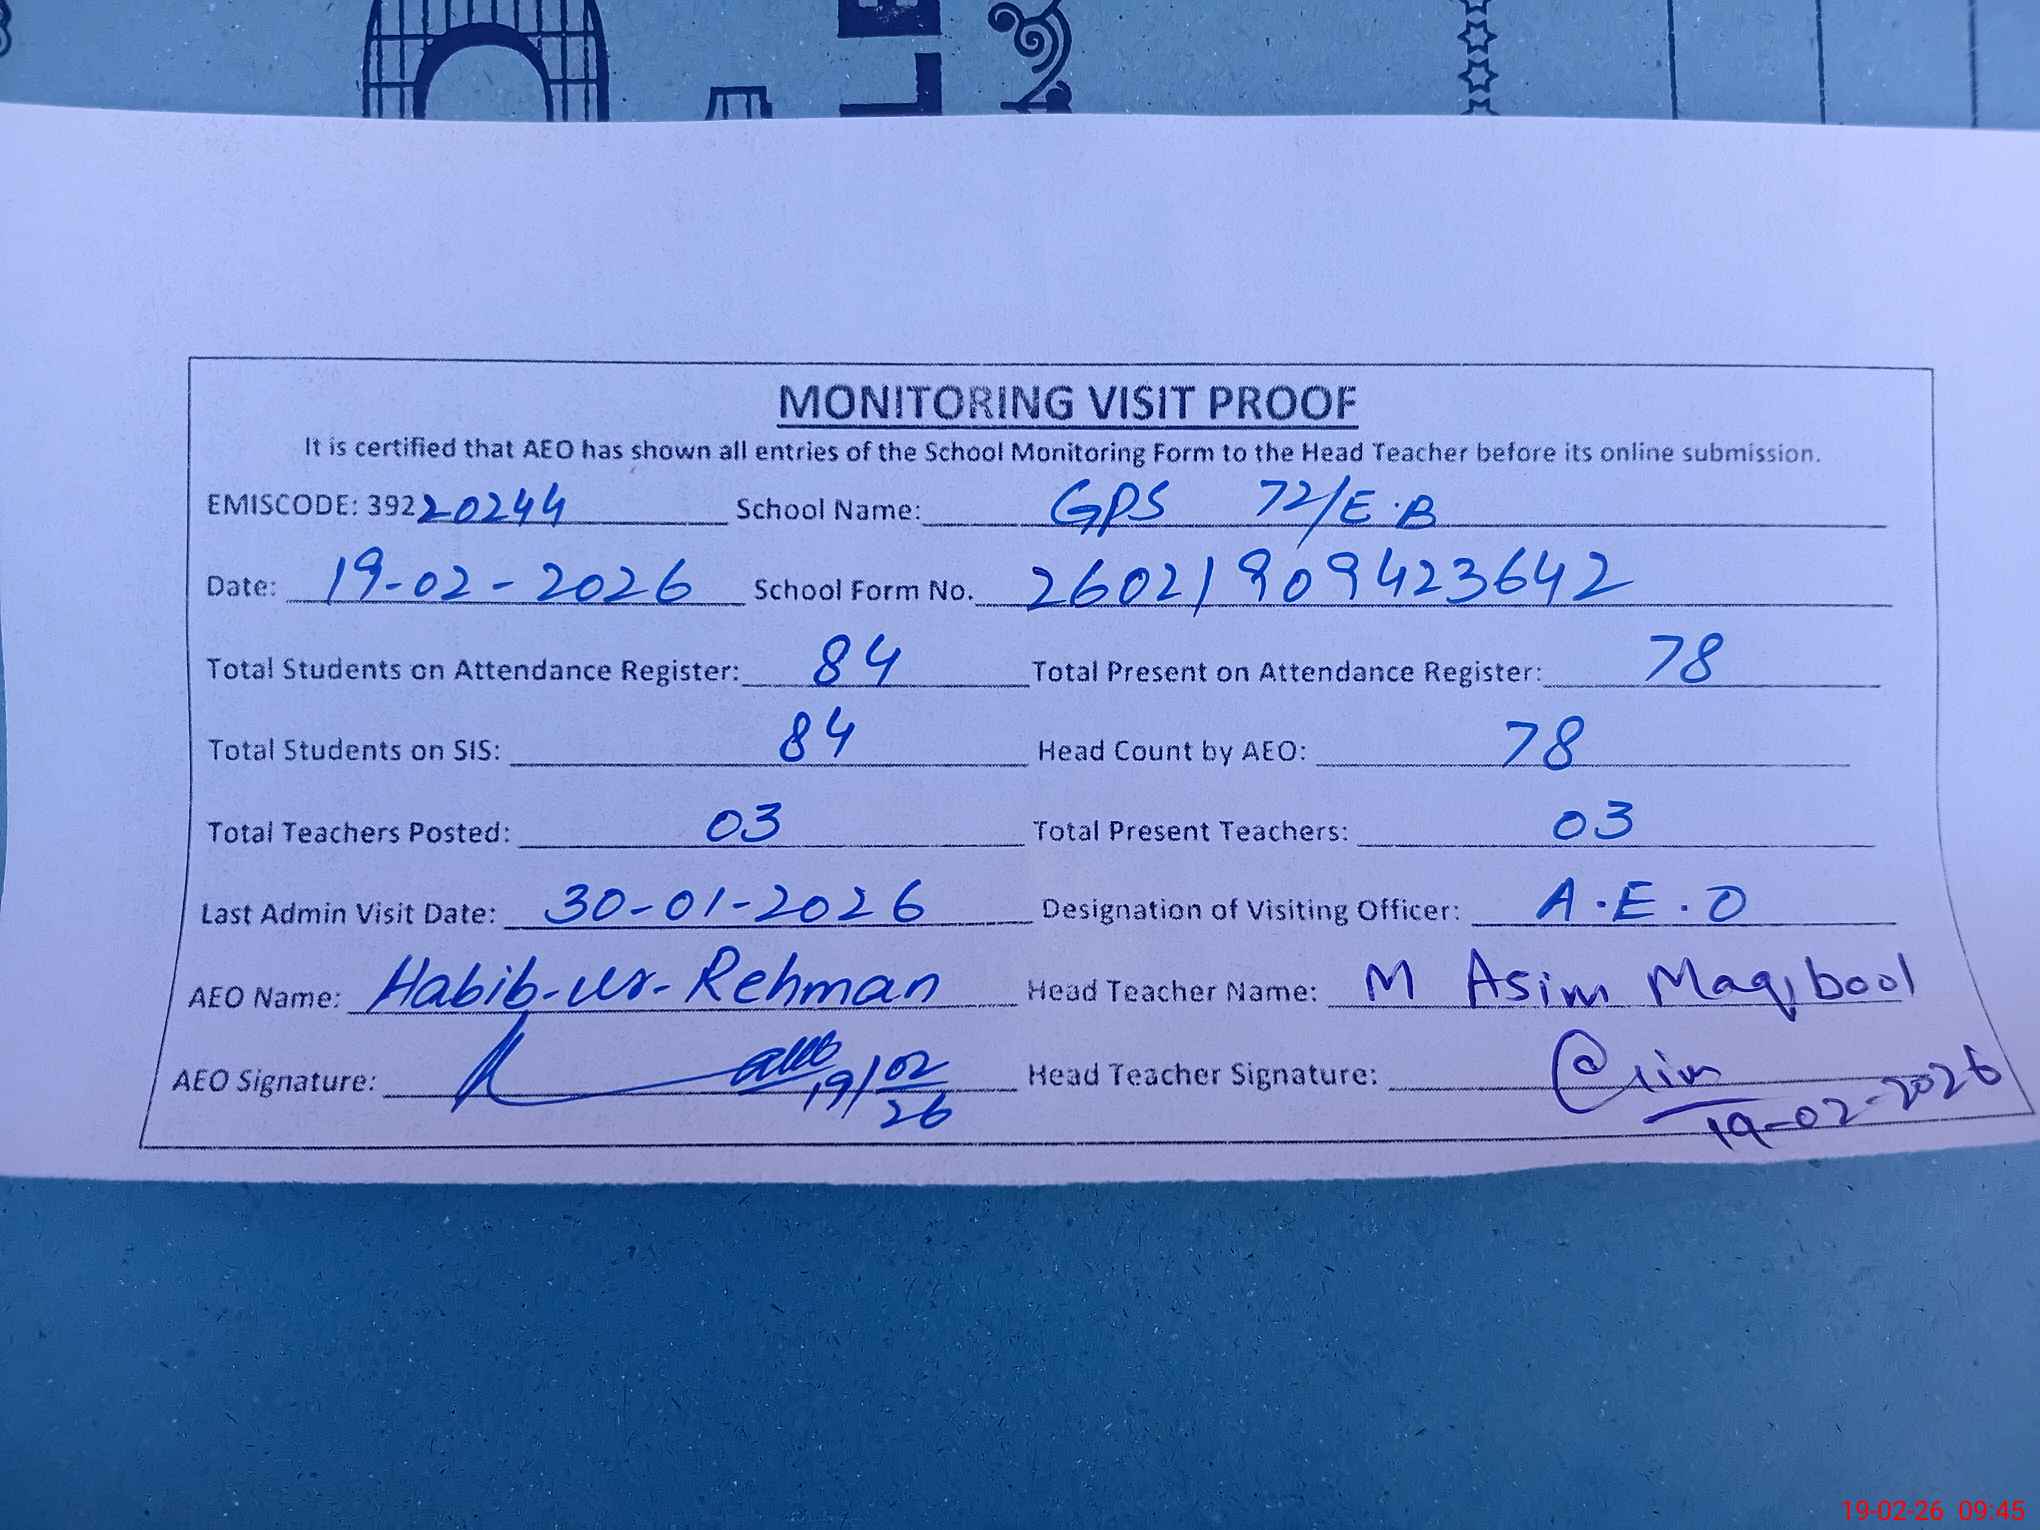 MONITORING VISIT PROOF
It is certified that AEO has shown all entries of the School Monitoring Form to the Head Teacher before its online submission.
EMISCODE: 39220244 School Name: GPS 72/E.B
Date: 19-02-2026 School Form No. 26021909423642
Total Students on Attendance Register: 84 Total Present on Attendance Register: 78
Total Students on SIS: 84 Head Count by AEO: 78
Total Teachers Posted: 03 Total Present Teachers: 03
Last Admin Visit Date: 30-01-2026 Designation of Visiting Officer: A.E.O
AEO Name: Habib-ur-Rehman Head Teacher Name: M Asim Maqbool
AEO Signature: 19/02/26 Head Teacher Signature: Asim
19-02-2026
19-02-26 09:45